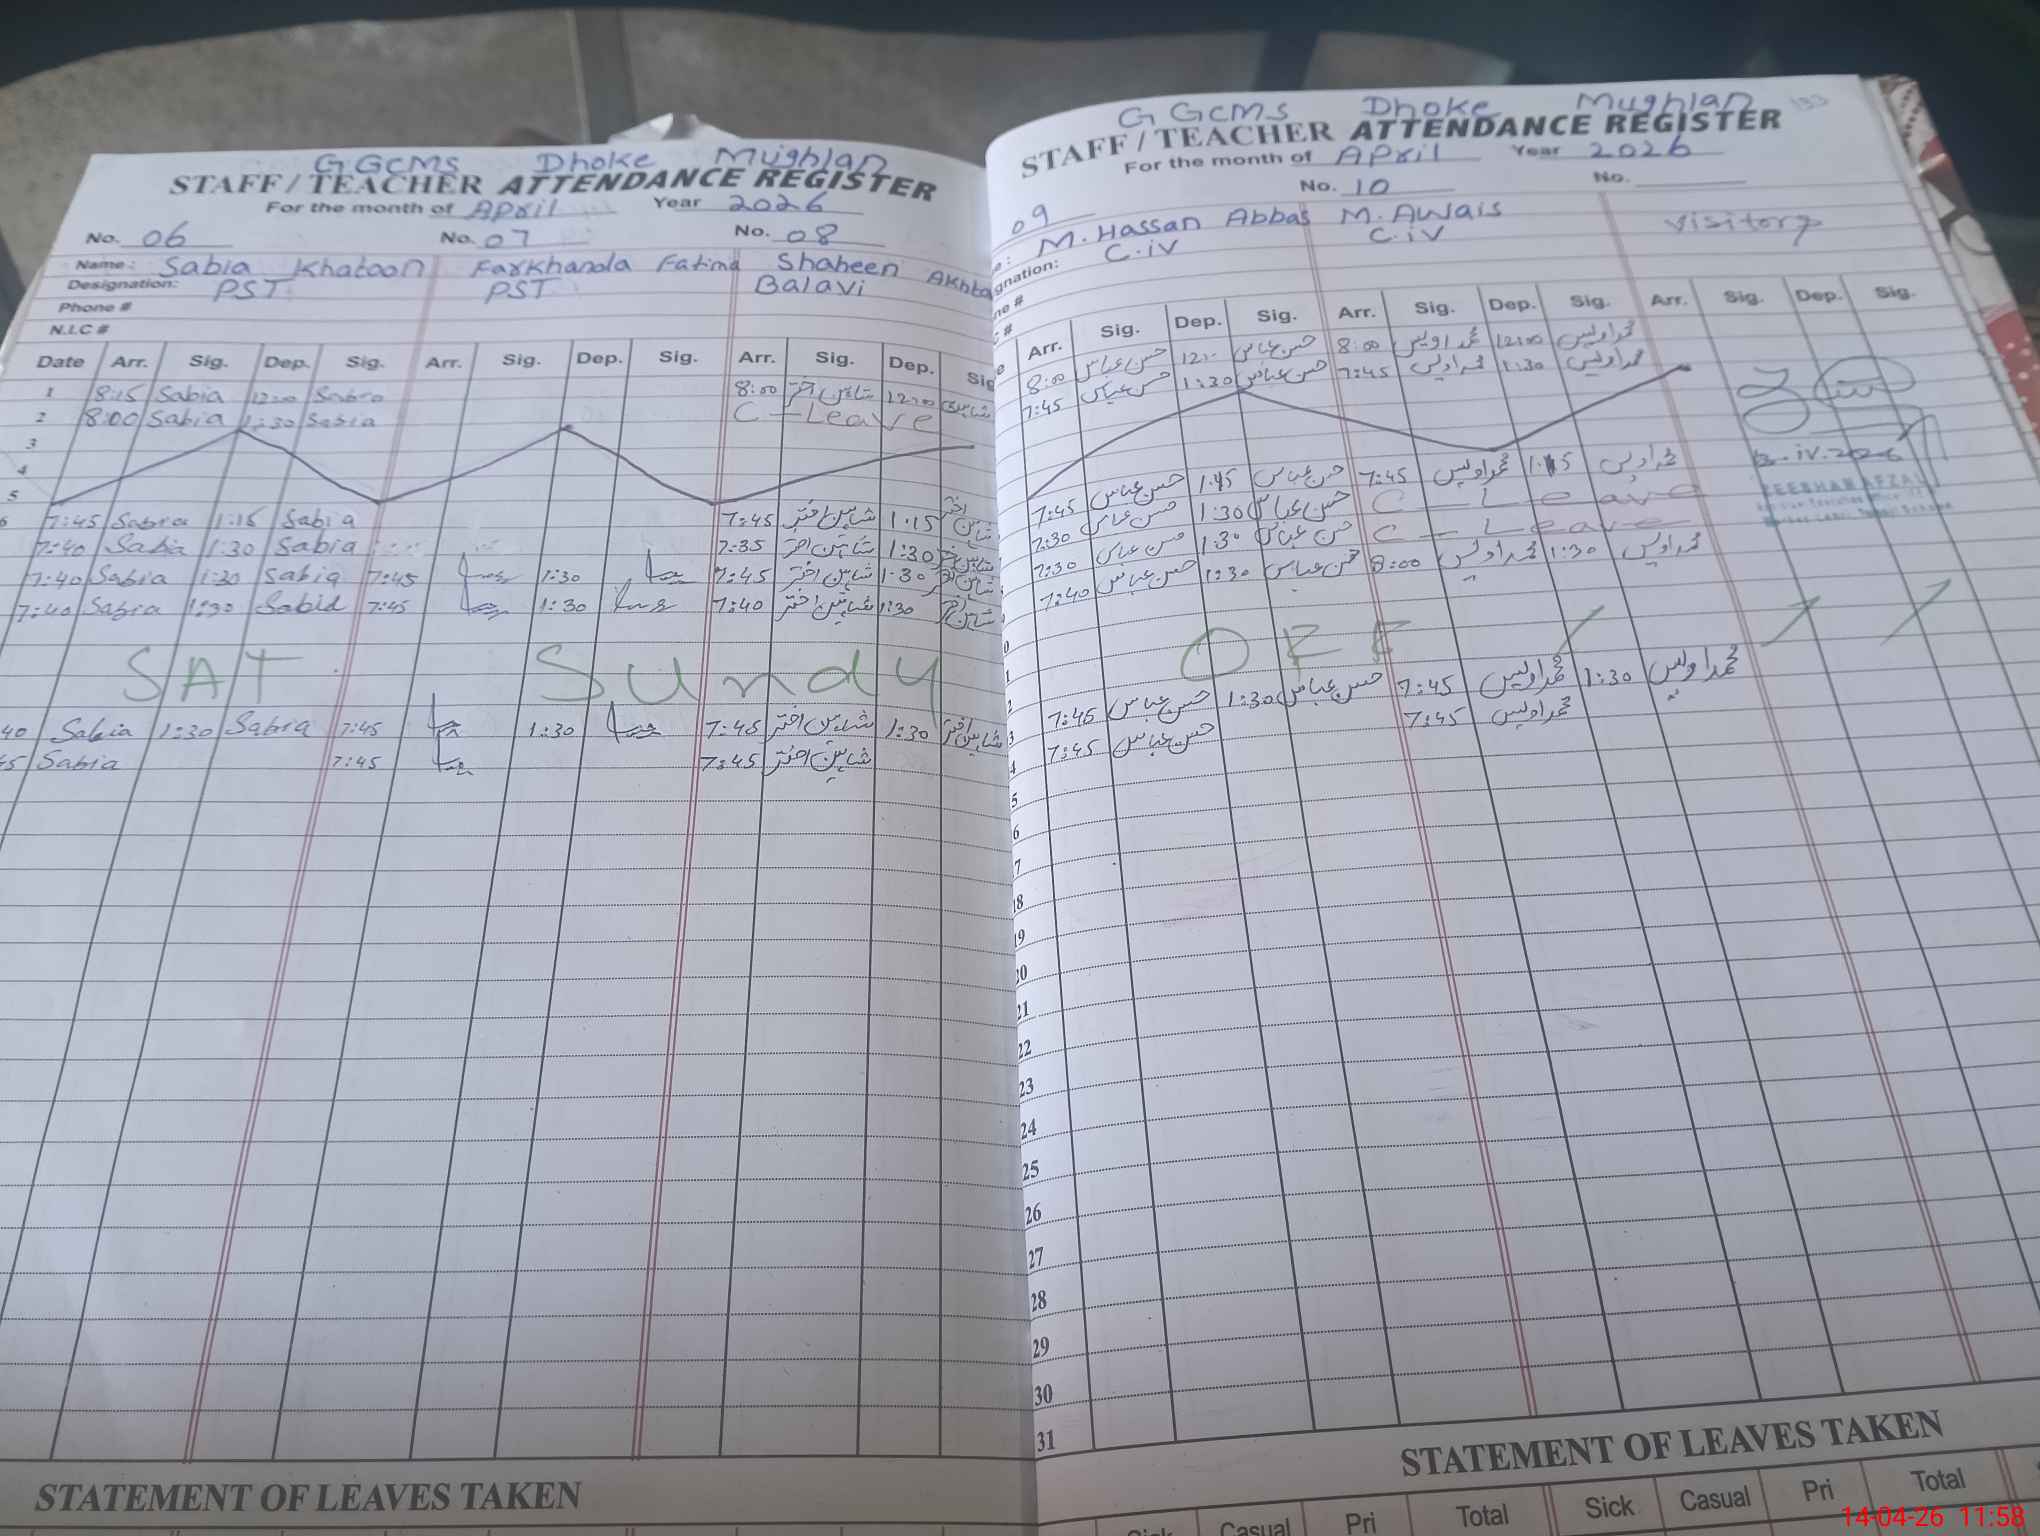 GGCMS Dhoke Mughlan
STAFF / TEACHER ATTENDANCE REGISTER
For the month of April Year 2026
No. 06 No. 07 No. 08
Name: Sabia Khatoon Farkhanda Fatima Shaheen Akhta
Designation: PST PST Balavi
Phone #
N.I.C #
Date Arr. Sig. Dep. Sig. Arr. Sig. Dep. Sig. Arr. Sig. Dep. Sig
1 8:15 Sabia 12:00 Sabia 8:00 شاہین اختر 12:00 شاہین
2 8:00 Sabia 1:30 Sabia C - Leave
3
4
5
6 7:45 Sabia 1:15 Sabia 7:45 شاہین اختر 1:15 شاہین اختر
7:40 Sabia 1:30 Sabia 7:35 شاہین اختر 1:30 شاہین اختر
7:40 Sabia 1:30 Sabia 7:45 1:30 7:45 شاہین اختر 1:30 شاہین اختر
7:40 Sabia 1:30 Sabia 7:45 1:30 7:40 شاہین اختر 1:30 شاہین اختر
SAT Sundy
40 Sabia 1:30 Sabia 7:45 1:30 7:45 شاہین اختر 1:30 شاہین اختر
45 Sabia 7:45 7:45 شاہین اختر
STATEMENT OF LEAVES TAKEN
GGCMS Dhoke Mughlan 133
STAFF / TEACHER ATTENDANCE REGISTER
For the month of April Year 2026
09 No. 10 No.
e: M. Hassan Abbas M. Awais Visitorz
gnation: C.iv C.iv
ne #
C #
e Arr. Sig. Dep. Sig. Arr. Sig. Dep. Sig. Arr. Sig. Dep. Sig.
8:00 حسن عباس 12:00 حسن عباس 8:00 محمد اویس 12:00 محمد اویس
7:45 حسن عباس 1:30 حسن عباس 7:45 محمد اویس 1:30 محمد اویس
7:45 حسن عباس 1:15 حسن عباس 7:45 محمد اویس 1:15 محمد اویس
7:30 حسن عباس 1:30 حسن عباس C - Leave
7:30 حسن عباس 1:30 حسن عباس C - Leave
7:40 حسن عباس 1:30 حسن عباس 8:00 محمد اویس 1:30 محمد اویس
0
1 OFF
2 7:45 حسن عباس 1:30 حسن عباس 7:45 محمد اویس 1:30 محمد اویس
3 7:45 حسن عباس 7:45 محمد اویس
4
5
6
7
18
19
20
21
22
23
24
25
26
27
28
29
30
31
STATEMENT OF LEAVES TAKEN
Sick Casual Pri Total Sick Casual Pri Total
14-04-26 11:58